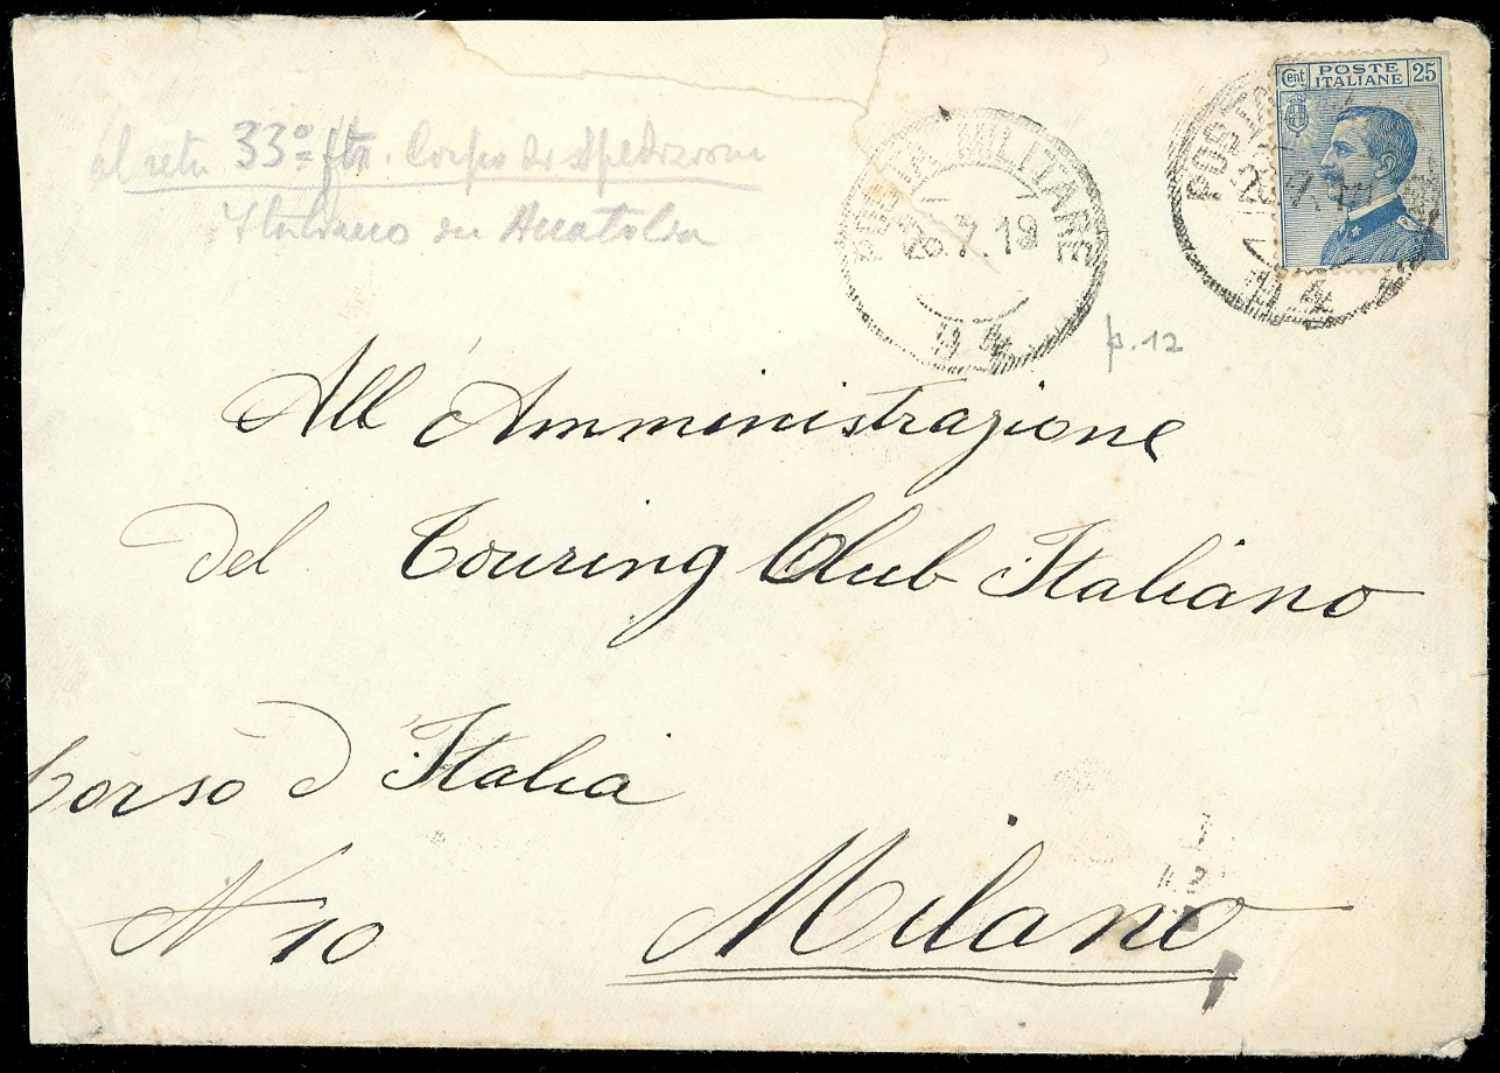 al retro 33º ftr. Corpo di Spedizione
Italiano in Anatolia
POSTA MILITARE
26.7.19
94
Cent POSTE ITALIANE 25
POSTA
94
p. 12
All'Amministrazione
del Touring Club Italiano
Corso d'Italia
N 10
Milano